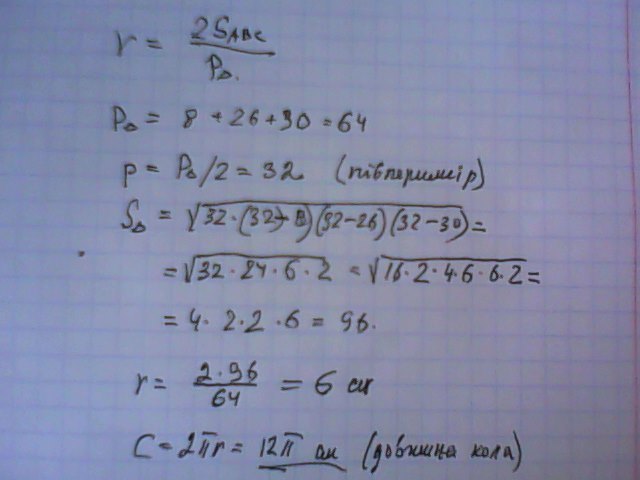 r = 2S_ABC / P_Δ.
P_Δ = 8 + 26 + 30 = 64
p = P_Δ/2 = 32 (півпериметр)
S_Δ = √(32·(32-8)(32-26)(32-30)) =
= √(32·24·6·2) = √(16·2·4·6·6·2) =
= 4·2·2·6 = 96.
r = 2·96 / 64 = 6 см
C = 2πr = 12π см (довжина кола)